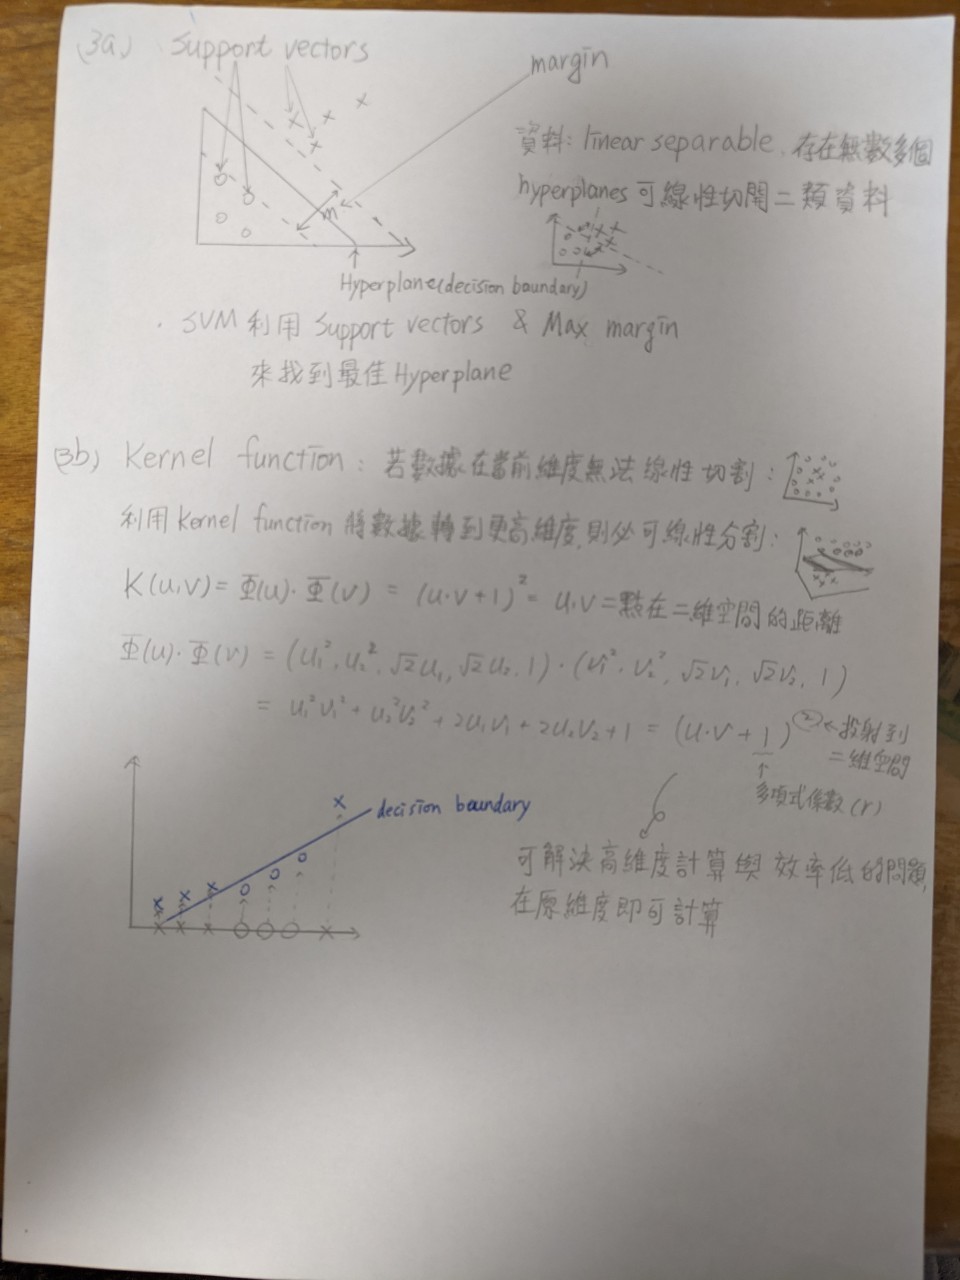 (3a) Support vectors
margin
資料: linear separable. 存在無數多個
hyperplanes 可線性切開二類資料
m
Hyperplane(decision boundary)
. SVM 利用 Support vectors & Max margin
來找到最佳 Hyperplane
(3b) Kernel function : 若數據在當前維度無法線性切割 :
利用 Kernel function 將數據轉到更高維度, 則必可線性分割 :
K(u,v) = Φ(u)·Φ(v) = (u·v+1)² = u,v = 點在二維空間的距離
Φ(u)·Φ(v) = (u₁², u₂², √2u₁, √2u₂, 1)·(v₁², v₂², √2v₁, √2v₂, 1)
= u₁²v₁² + u₂²v₂² + 2u₁v₁ + 2u₂v₂ + 1 = (u·v + 1)② ← 投射到
二維空間
↑
多項式係數 (r)
decision boundary
可解決高維度計算與效率低的問題,
在原維度即可計算